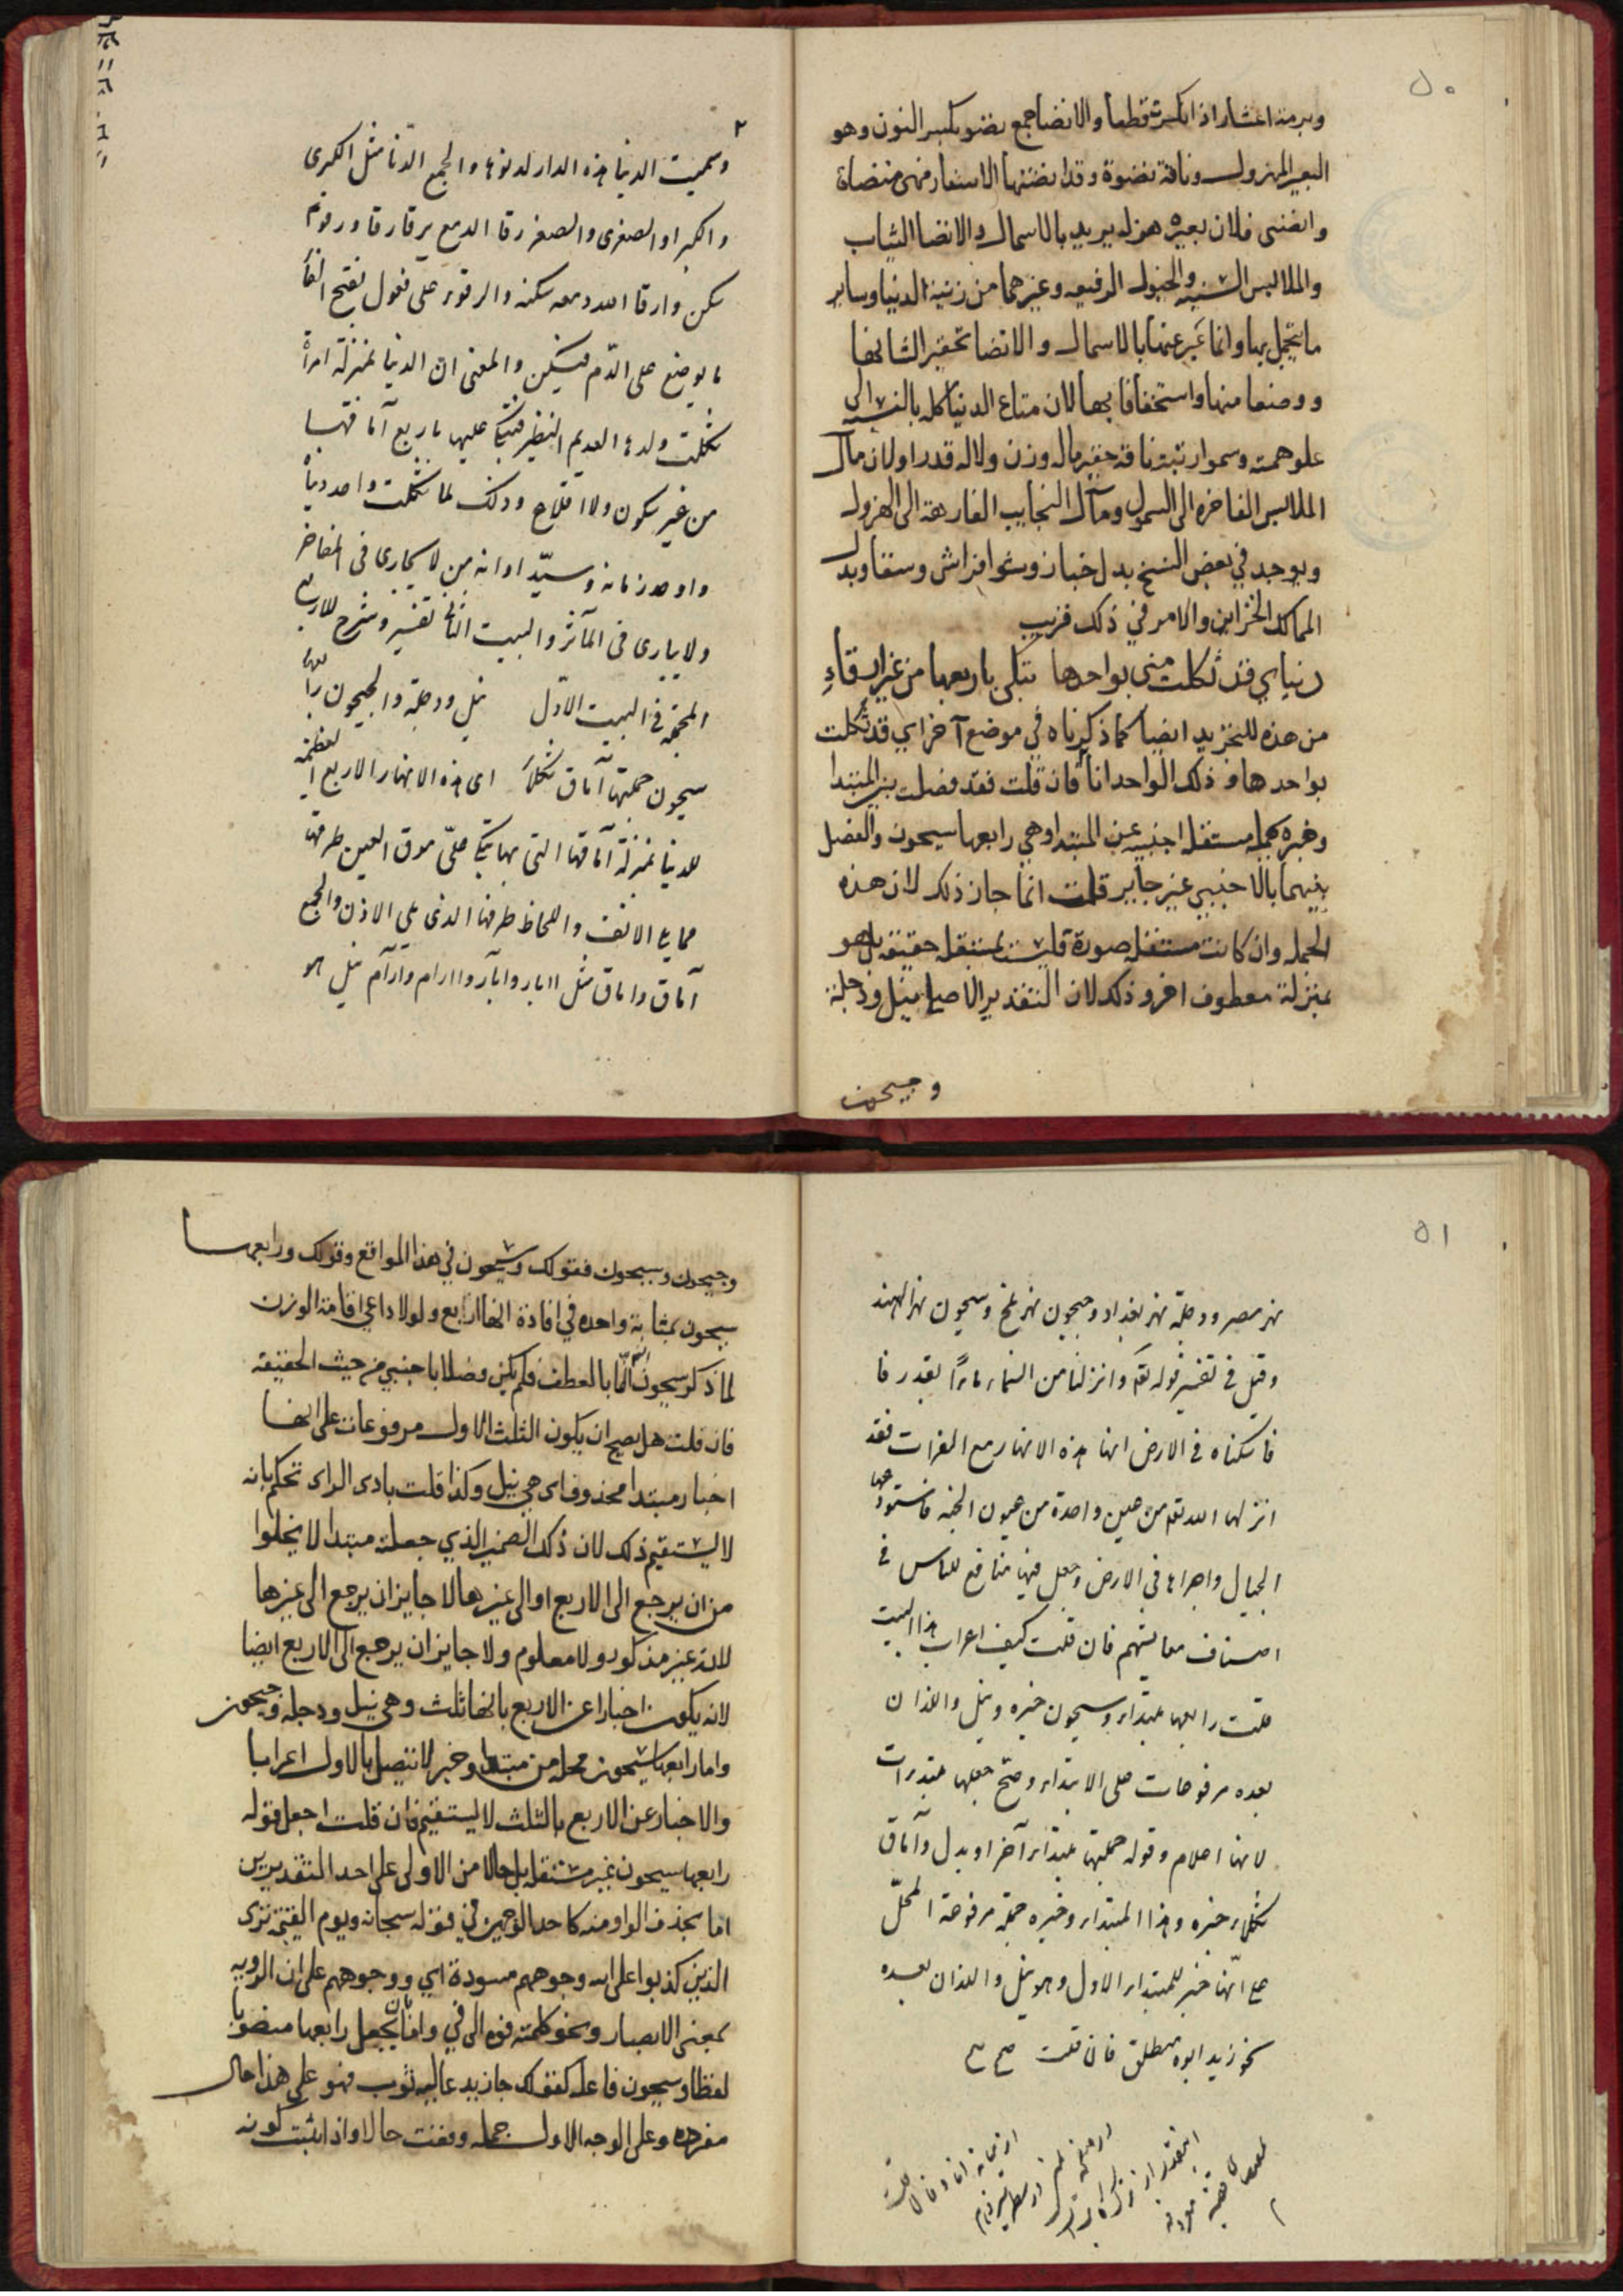 ٥٠
وبرمة اعشار اذا انكسرت قطعا والانضا جمع نضو بكسر النون وهو
البعير المهزول وناقة نضوة وقد انضتها الاسفار فهى منضاة
وانضى فلان بعيره هزله يريد بالاسمال والانضا الثياب
والملابس السنيه والخيول الرفيعه وغيرهما من زينة الدنيا وساير
ما يتجمل بها وانما عبر عنها بالاسمال والانضا تحقيرا لشانها
ووضعا منها واستخفافا بها لان متاع الدنيا كله بالنسبه الى
علو همته وسمو رتبته تافه حقير ماله وزن ولا له قدر او لان مال
الملابس الفاخره الى السمول ومآل النجايب الفارهة الى الهزول
ويوجد في بعض النسخ بدل خباز وشوا فراش وسقا وبدل
الممالك الخزاين والامر في ذلك قريب
دنياي قد ثكلت مني بواحدها تبكي باربعها من غير ارقاءِ
من هذه للتجريد ايضا كما ذكرناه في موضع آخر اي قد ثكلت
بواحدها وذلك الواحد انا فان قلت فقد فصلت بين المبتدا
وخبره بجمله مستقله اجنبيه عن المبتدا وهي رابعها سيحون والفصل
بينهما بالاجنبي غير جايز قلت انما جاز ذلك لان هذه
الجمله وان كانت مستقله صورة فليست بمستقله حقيقة بل هو
بمنزلة معطوف اخر وذلك لان التقدير الاصلي نيل ودجلة
وجيحون
٢
وسميت الدنيا هذه الدار لدنوها والجمع الدنا مثل الكبرى
والكبر او الصغرى والصغر رقا الدمع يرقا رقا ورقوء
سكن وارقا الله دمعه سكنه والرقوء على فعول بفتح الفا
ما يوضع على الدّم فيسكن والمعنى ان الدنيا بمنزلة امرأة
ثكلت ولدها العديم النظير فتبكي عليه باربع آماقها
من غير سكون ولا اقلاع وذلك لما ثكلت واحد دنيا
واوحد زمانه وسيّد اوانه من لا يجارى في المفاخر
ولا يبارى في المآثر والبيت الثاني تفسير وشرح للاربع
المجتمعة في البيت الاوّل نيل ودجلة والجيحون رابعها
سيحون جملتها آماق ثكلاء اى هذه الانهار الاربع العظيمة
للدنيا بمنزلة آماقها التى بها تبكي على موق العين طرفها
مما يلي الانف واللحاظ طرفها الذى يلي الاذن والجمع
آماق واماق مثل ابار وابآر واارام وارآم نيل هو
٥١
نهر مصر ودجلة نهر بغداد وجيحون نهر بلخ وسيحون نهر الهند
وقيل في تفسير قوله تعالى وانزلنا من السماء ماءً بقدر فا
فاسكناه في الارض انها هذه الانهار مع الفرات فقد
انزلها الله تعالى من عين واحدة من عيون الجنه فاستودعها
الجبال واجراها في الارض وجعل فيها منافع للناس في
اصناف معايشهم فان قلت كيف اعراب هذا البيت
قلت رابعها مبتداء وسيحون خبره ونيل واللذان
بعده مرفوعات على الابتداء وصح جعلها مبتدءات
لانها اعلام وقوله جملتها مبتداء آخر او بدل وآماق
ثكلاء خبره وهذا المبتداء وخبره جملة مرفوعة المحلّ
على انّها خبر للمبتداء الاول وهو نيل واللذان بعده
نحو زيد ابوه منطلق فان قلت صح صح
وجيحون وسيحون فقولك وسيحون في هذا المواقع وقولك ورابعها
سيحون بمثابة واحده في افادة انها اربع ولولا داعي اقامة الوزن
لما ذكر سيحون الا بالعطف فلم يكن فصلا باجنبي من حيث الحقيقه
فان قلت هل يصح ان يكون الثلث الاول مرفوعات على انها
اخبار مبتدا محذوف اى هي نيل وكذا قلت بادى الراى تحكم بانه
لا يستقيم ذلك لان ذلك الضمير الذي جعلته مبتدا لا يخلوا
من ان يرجع الى الاربع او الى غيرها لا جايز ان يرجع الى غيرها
لانه غير مذكور ولا معلوم ولا جايز ان يرجع الى الاربع ايضا
لانه يكون اخبارا عن الاربع بانها ثلث وهي نيل ودجلة وجيحون
واما رابعها سيحون فجملة من مبتدا وخبر لا تتصل بالاول اعرابا
والاخبار عن الاربع بالثلث لا يستقيم فان قلت اجعل قوله
رابعها سيحون غير مستقل بل حالا من الاولى على احد التقديرين
اما بحذف الواو منه كاحد الوجهين في قوله سبحانه ويوم القيمة ترى
الذين كذبوا على الله وجوههم مسودة اي ووجوههم على ان الرويه
بمعنى الابصار ونحو كلمته فوه الى في واما بان يجعل رابعها منصوبا
لفظا وسيحون فاعله كقولك جا زيد عاليه ثوب فهو على هذا حال
مفرده وعلى الوجه الاول جمله وقعت حالا واذا ثبت كونه